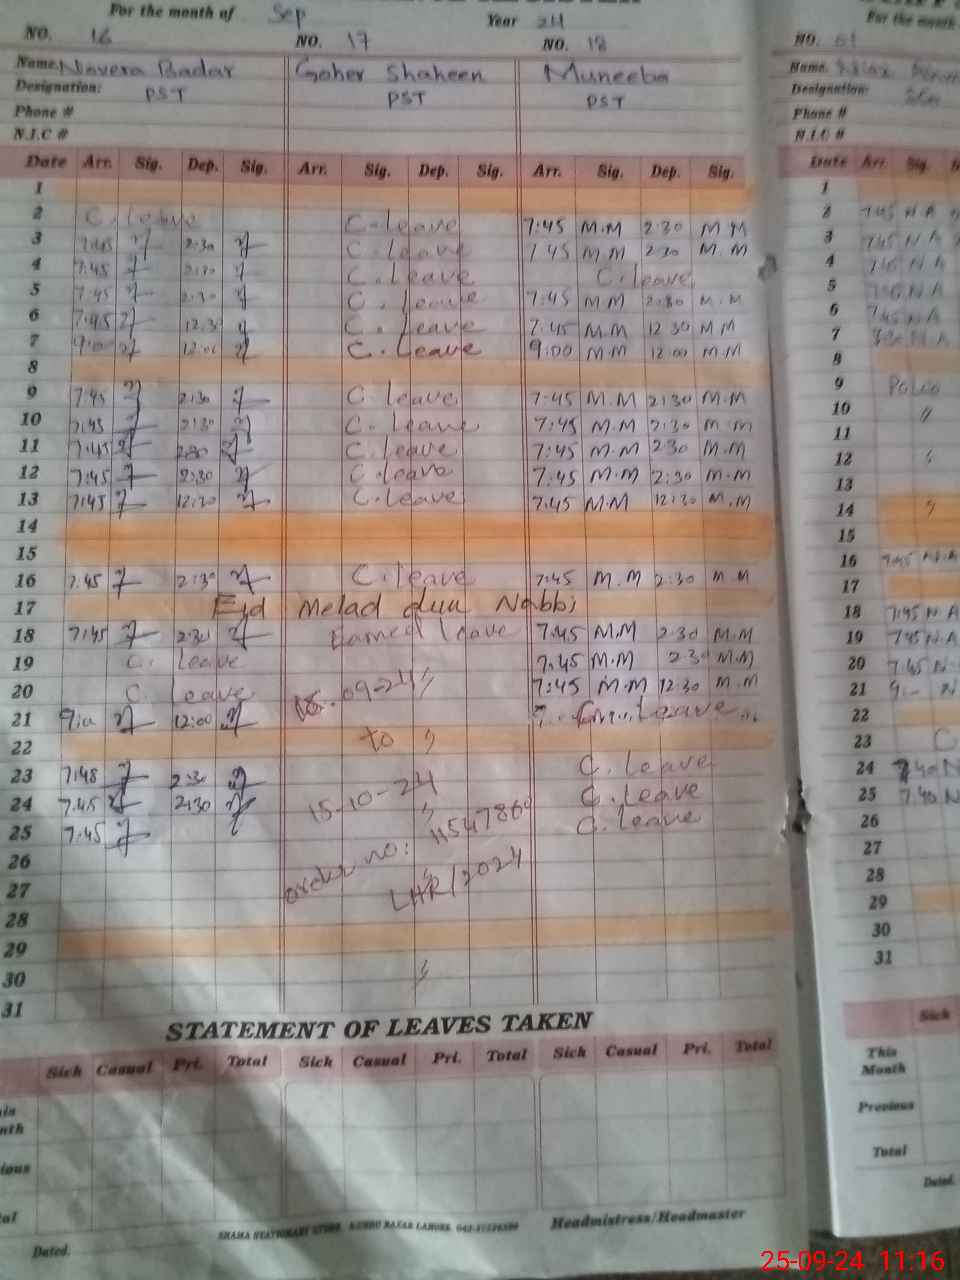 For the month of Sep Year 24
NO. 16 NO. 17 NO. 18
Name. Navera Badar Goher Shaheen Muneeba
Designation: PST PST PST
Phone #
N.I.C #
Date Arr. Sig. Dep. Sig. Arr. Sig. Dep. Sig. Arr. Sig. Dep. Sig.
1
2 C. leave C. leave 7:45 M.M 2:30 M M
3 7:45 2:30 C. leave 7 45 M M 2 30 M.M
4 7:45 2:30 C. leave C. leave
5 7:45 2:30 C. leave 7:45 M M 2:30 M.M
6 7:45 12:30 C. leave 7:45 MM 12 30 M M
7 9:00 12:00 C. leave 9:00 M M 12:00 M.M
8
9 7:45 2:30 C. leave 7:45 M.M 2:30 M.M
10 7:45 2:30 C. leave 7:45 M.M 2:30 M.M
11 7:45 2:30 C. leave 7:45 M.M 2:30 M.M
12 7:45 2:30 C. leave 7:45 M.M 2:30 M.M
13 7:45 12:30 C. leave 7:45 M.M 12:30 M.M
14
15
16 7:45 2:30 C. leave 7:45 M.M 2:30 M M
17 Eid Melad Nabbi
18 7:45 2:30 Earned leave 7:45 M.M 2:30 M.M
19 C. leave 7:45 M.M 2 30 M.M
20 C. leave 09-24 7:45 M.M 12:30 M.M
21 12:00 Leave
22 to
23 7:45 2:30 C. leave
24 7:45 2:30 15-10-24 C. leave
25 7:45 C. leave
26 order no: 1154786
27 LHR/2024
28
29
30
31
STATEMENT OF LEAVES TAKEN
Sick Casual Pri. Total Sick Casual Pri. Total Sick Casual Pri. Total
Headmistress/Headmaster
Dated.
For the month
NO.
Name.
Designation:
Phone #
N.I.C #
Date Arr. Sig.
1
2 7:45 N A
3 7:45 N A
4 7:45 N A
5 N.A
6 7:45 N A
7 N.A
8
9 Polio
10 "
11
12
13
14
15
16 7:45 N.A
17
18 7:45 N.A
19 7:45 N.A
20 7:45 N.
21 9:- N
22
23 C
24 7:40 N
25 7:40 N
26
27
28
29
30
31
Sick
This Month
Previous
Total
Dated.
25-09-24 11:16